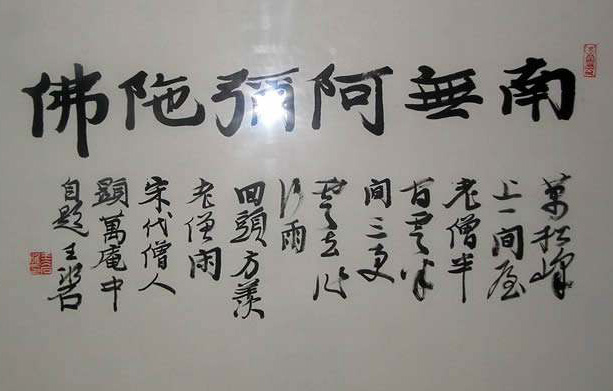 南無阿彌陀佛
萬松峰
上一間屋
老僧半
間雲半
間三更
雲去作
行雨
回頭方羨
老僧閑
宋代僧人
顯萬庵中
自題 王